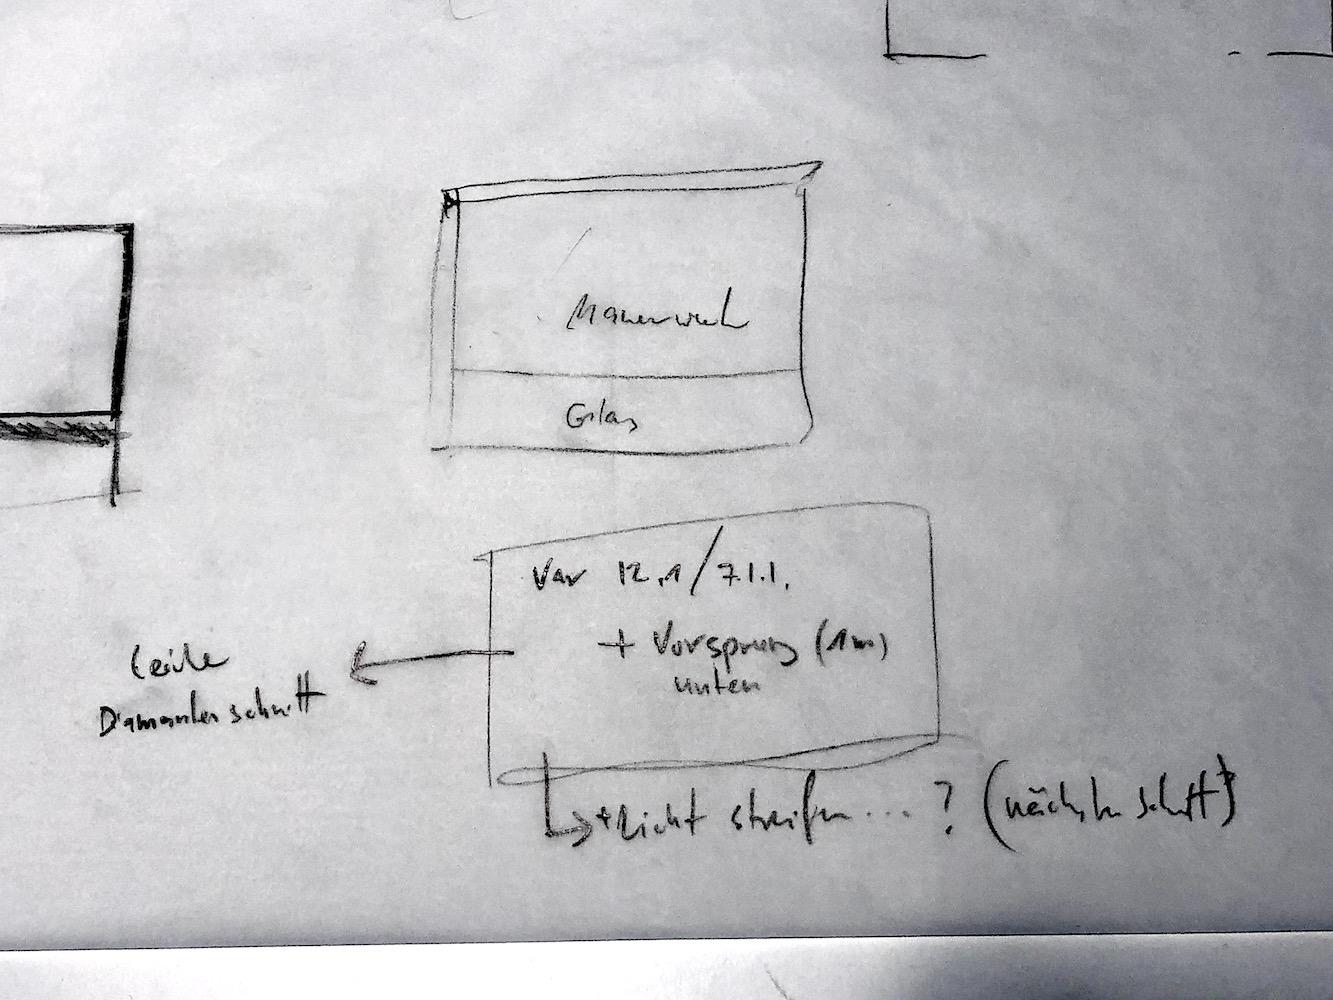 Mauerwerk
Glas
Var 12.1/7.1.1.
+ Vorsprung (1m)
unten
Leichte
Diamantenschnitt
+ Licht streifen...? (nächster Schritt)